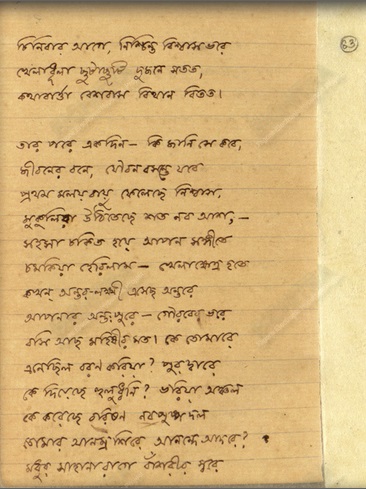 চিনিবার আগে, নিশ্চিন্ত বিশ্বাসভরে
খেলাধূলা ছুটাছুটি দুজনে সতত,
কথাবার্ত্তা বেশবাস বিথান বিতত।
তার পরে একদিন — কি জানি সে কবে,
জীবনের বনে, যৌবনবসন্তে যবে
প্রথম মলয় বায়ু ফেলেছে নিশ্বাস,
মুকুলিয়া উঠিতেছে শত নব আশা, —
সহসা চকিত হয়ে আপন সঙ্গীতে
চমকিয়া হেরিলাম — খেলাক্ষেত্র হতে
কখন্ অন্তর-লক্ষ্মী এসেছ অন্তরে
আপনার অন্তঃপুরে — গৌরবের ভরে
বসি আছ মহিষীর মত। কে তোমারে
এনেছিল বরণ করিয়া? পুরদ্বারে
কে দিয়েছে হুলুধ্বনি? ভরিয়া অঞ্চল
কে করেছে বরিষণ নবপুষ্পদল
তোমার আনম্র শিরে আনন্দে আদরে?
মধুর সাহানারাগে বাঁশরীর সুরে